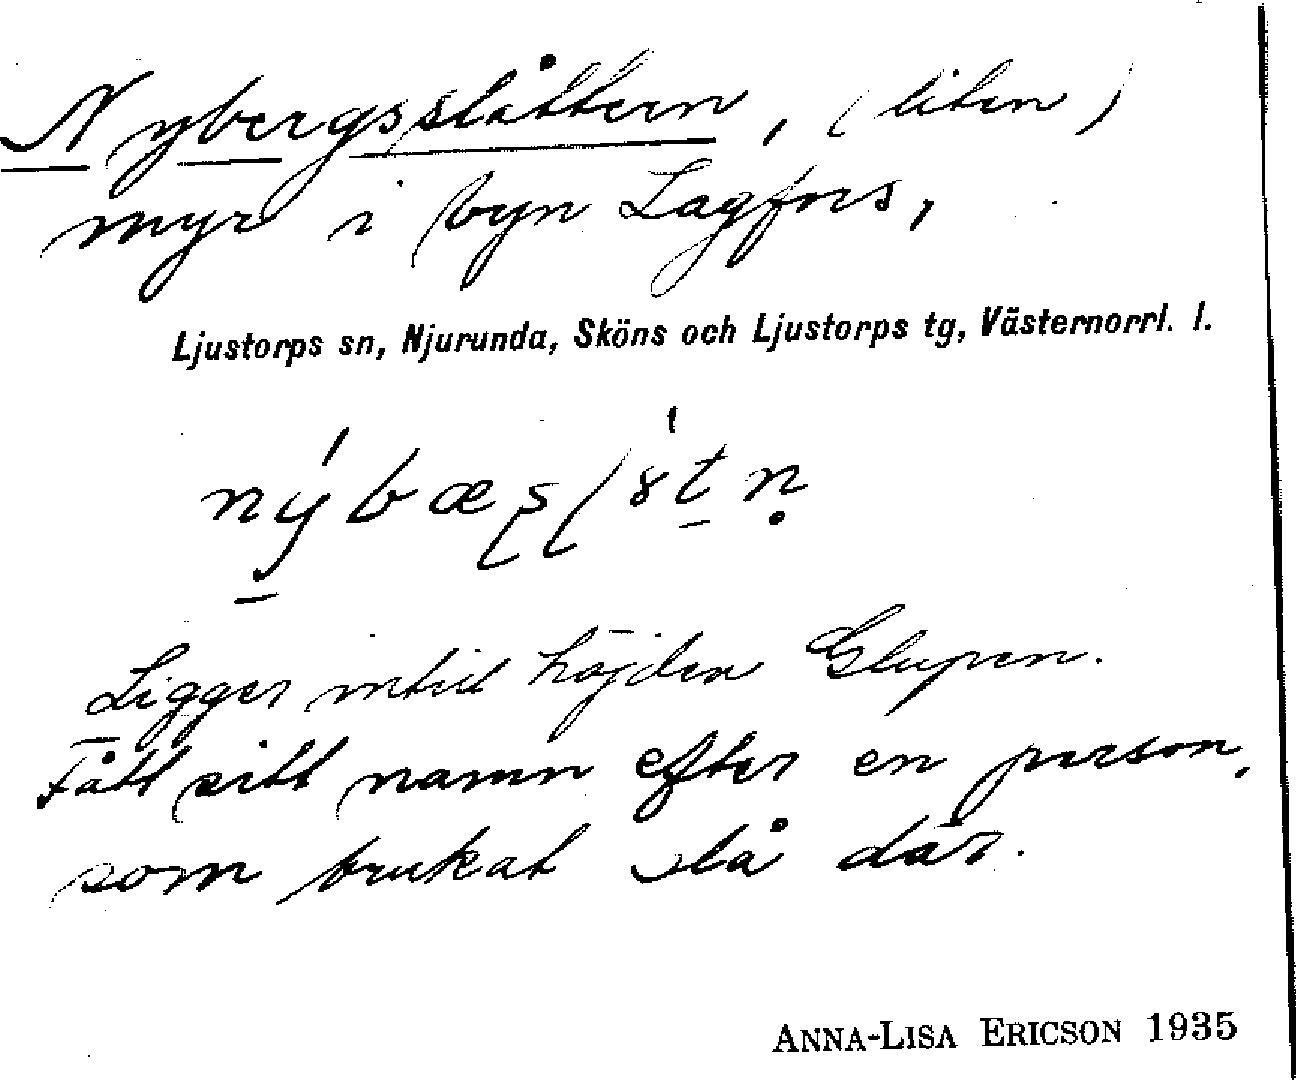 Nybergsslåttern, (liten)
myr i byn Lagfors,
Ljustorps sn, Njurunda, Sköns och Ljustorps tg, Västernorrl. l.
Ligger intill höjden Glupen.
Fått sitt namn efter en person,
som brukat slå där.
ANNA-LISA ERICSON 1935